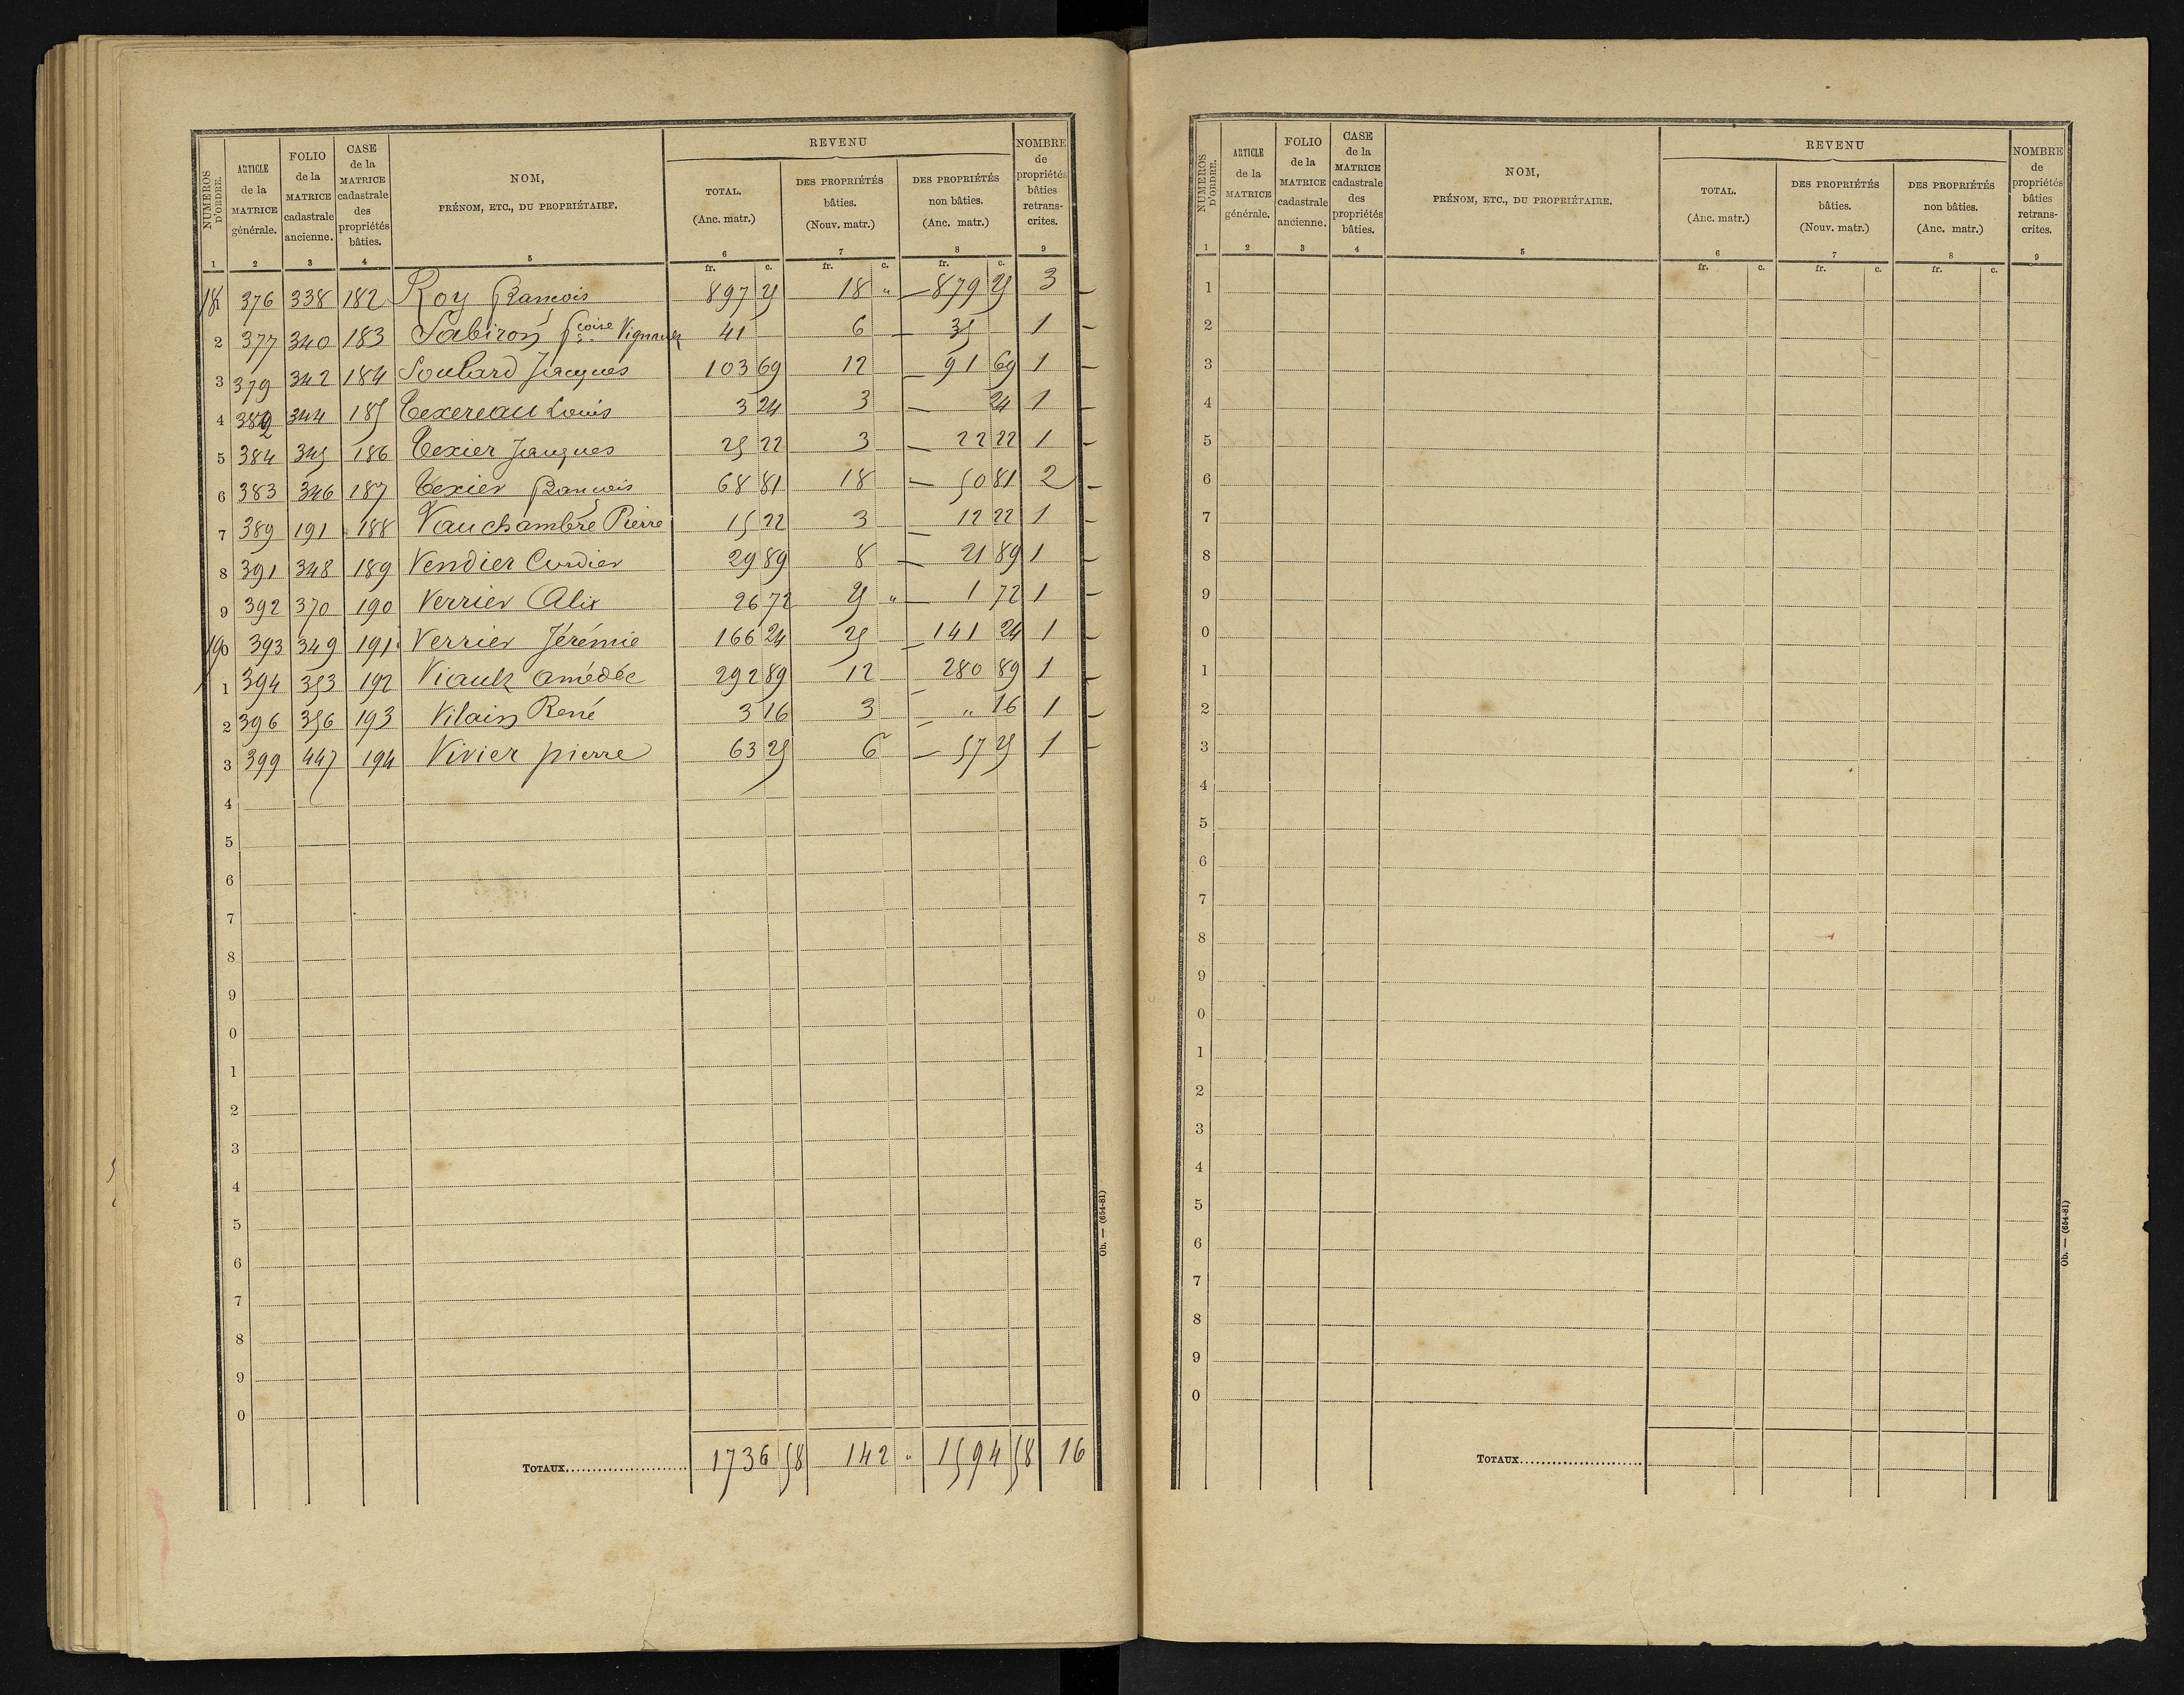 NUMÉROS D'ORDRE. | ARTICLE de la MATRICE générale. | FOLIO de la MATRICE cadastrale ancienne. | CASE de la MATRICE cadastrale des propriétés bâties. | NOM, PRÉNOM, ETC., DU PROPRIÉTAIRE. | REVENU | NOMBRE de propriétés bâties retrans-crites.
TOTAL. (Anc. matr.) | DES PROPRIÉTÉS bâties. (Nouv. matr.) | DES PROPRIÉTÉS non bâties. (Anc. matr.)
1 | 2 | 3 | 4 | 5 | 6 | 7 | 8 | 9
fr. c. | fr. c. | fr. c.
181 | 376 | 338 | 182 | Roy françois | 897 25 | 18 " | 879 25 | 3
2 | 377 | 340 | 183 | Sabiron fcoise Vignault | 41 | 6 | 35 | 1
3 | 379 | 342 | 184 | Soulard Jacques | 103 69 | 12 | 91 69 | 1
4 | 382 | 344 | 185 | Texereau Louis | 3 24 | 3 | 24 | 1
5 | 384 | 345 | 186 | Texier Jacques | 25 22 | 3 | 22 22 | 1
6 | 383 | 346 | 187 | Texier françois | 68 81 | 18 | 50 81 | 2
7 | 389 | 191 | 188 | Vauchambre Pierre | 15 22 | 3 | 12 22 | 1
8 | 391 | 348 | 189 | Vendier Cordier | 29 89 | 8 | 21 89 | 1
9 | 392 | 370 | 190 | Verrier Alix | 26 72 | 25 " | 1 72 | 1
190 | 393 | 349 | 191 | Verrier Jérémie | 166 24 | 25 | 141 24 | 1
1 | 394 | 353 | 192 | Viault Amédée | 292 89 | 12 | 280 89 | 1
2 | 396 | 356 | 193 | Vilain René | 3 16 | 3 | " 16 | 1
3 | 399 | 447 | 194 | Vivier pierre | 63 25 | 6 | 57 25 | 1
4
5
6
7
8
9
0
1
2
3
4
5
6
7
8
9
0
TOTAUX | 1736 58 | 142 " | 1594 58 | 16
Ob. — (654-81)
NUMÉROS D'ORDRE. | ARTICLE de la MATRICE générale. | FOLIO de la MATRICE cadastrale ancienne. | CASE de la MATRICE cadastrale des propriétés bâties. | NOM, PRÉNOM, ETC., DU PROPRIÉTAIRE. | REVENU | NOMBRE de propriétés bâties retrans-crites.
TOTAL. (Anc. matr.) | DES PROPRIÉTÉS bâties. (Nouv. matr.) | DES PROPRIÉTÉS non bâties. (Anc. matr.)
1 | 2 | 3 | 4 | 5 | 6 | 7 | 8 | 9
fr. c. | fr. c. | fr. c.
1
2
3
4
5
6
7
8
9
0
1
2
3
4
5
6
7
8
9
0
1
2
3
4
5
6
7
8
9
0
TOTAUX
Ob. — (654-81)